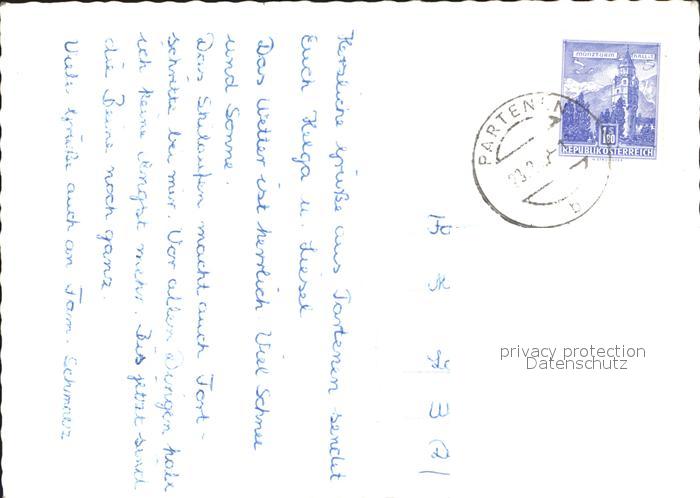 Herzliche Grüße aus Partenen sendet
Euch Helga u. Liesel
Das Wetter ist herrlich Viel Schnee
und Sonne.
Das Skilaufen macht auch Fort-
schritte bei mir. Vor allen Dingen habe
ich keine Angst mehr. Bis jetzt sind
die Beine noch ganz.
Viele Grüße auch an Fam. Schmarz
MÜNZTURM HALL i. T.
1.80
REPUBLIK ÖSTERREICH
PARTENEN
b
privacy protection
Datenschutz